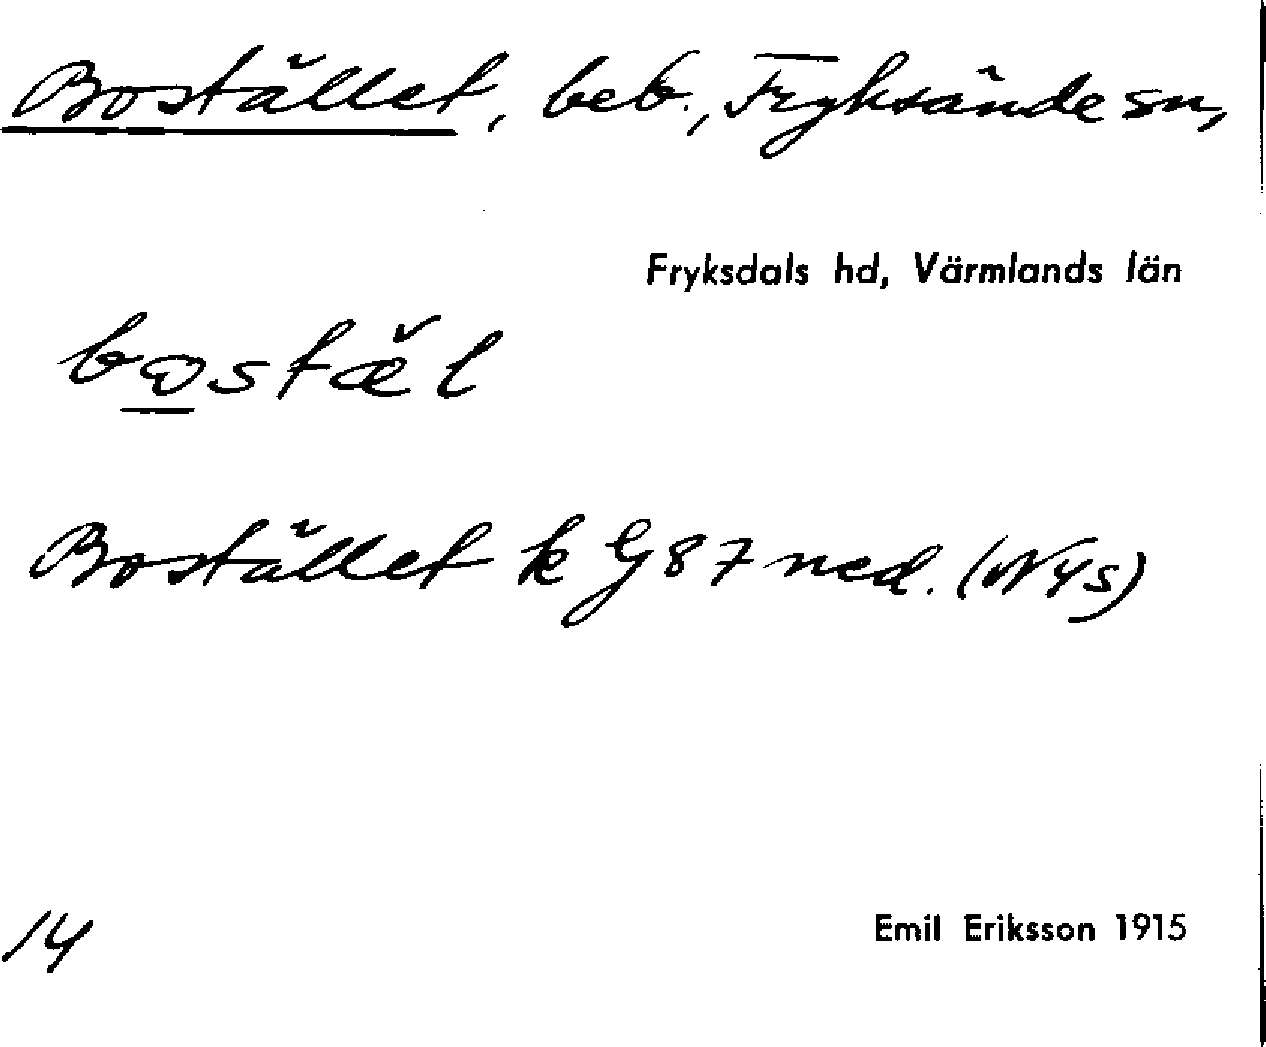 Bostället, beb., Fryksände sn,
Fryksdals hd, Värmlands län
bωstæ̆l
Bostället k G 87 ned. (Nys)
14
Emil Eriksson 1915